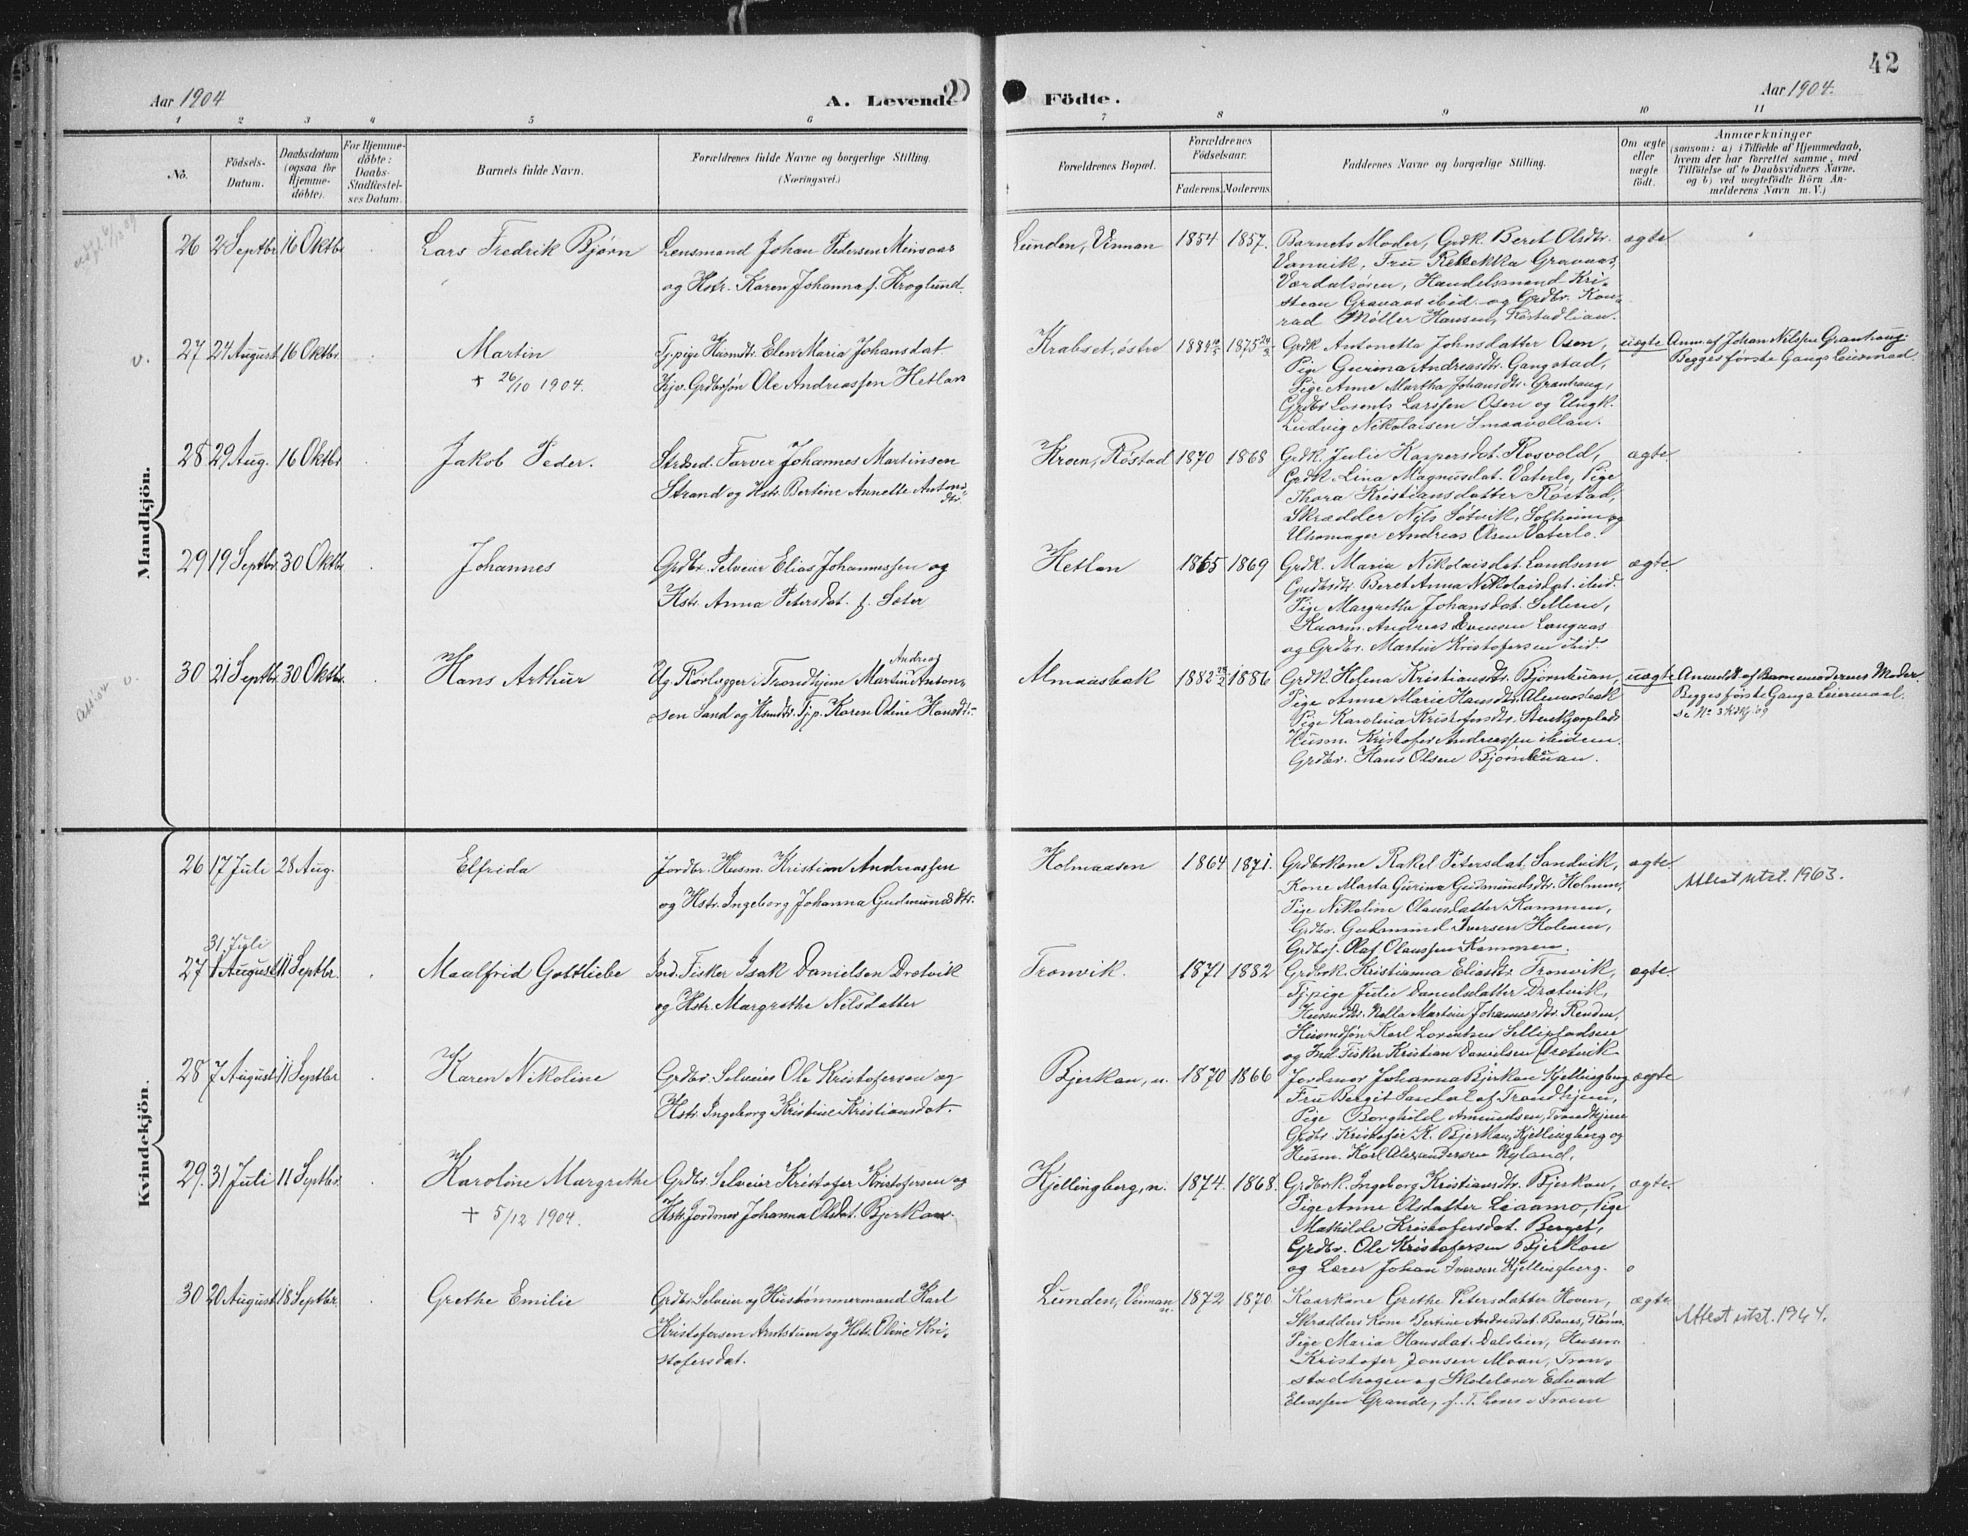 42
Aar 1904
A. Levende
Födte.
Aar 1904.
1 2 3 4 5 6 7 8 9 10 11
No.
Födsels-
Datum.
Daabsdatum
(ogsaa for
Hjemme-
döbte).
For Hjemme-
döbte:
Daabs-
Stadfæstel-
ses Datum.
Barnets fulde Navn.
Forældrenes fulde Navne og borgerlige Stilling.
(Næringsvei.)
Forældrenes Bopæl.
Forældrenes
Födselsaar.
Faderens. Moderens.
Faddernes Navne og borgerlige Stilling.
Om ægte
eller
uægte
födt.
Anmærkninger
(saasom: a) i Tilfælde af Hjemmedaab,
hvem der har forrettet samme, med
Tilföielse af to Daabsvidners Navne.
og b) ved uægtefödte Börn An-
melderens Navn m. V.)
Mandkjön.
26 2 Septbr. 16 Oktbr.
Lars Fredrik Bjørn
Lensmand Johan Pedersen Meinaas
og Hstr. Karen Johanna f. Kroglund.
Lunden, Vinnan
1854 1857.
Barnets Moder, Grdk. Beret Olsdtr.
Vanvik, Fru Rebekka Gravaas,
Værdalsören, Handelsmand Kri-
stian Gravaas ibid. og Grdbr. Kon-
rad Møller Hansen, Röstadlian.
ægte
v.
27 24 August 16 Oktbr.
Martin
+ 26/10 1904.
Tj.pige Husmdtr. Elen Maria Johansdat
Kjv. Grdbrsön Ole Andreassen Hetlan
Krabset, østre
1875 24/3
Grdk. Antonetta Johnsdatter Osen,
Pige Gurina Andreasdtr. Gangstad,
Pige Anne Martha Johansdtr. Granhaug,
Grdbr. Lorents Larssen Osen og Ungk.
Ludvig Nikolaisen Smaavollan.
uægte
Anm. af Johan Nilssen Granhaug
Begges første Gangs Leiermaal.
28 29 Aug. 16 Oktbr
Jakob Peder.
Strdsd. Farver Johannes Martinsen
Strand og Hstr. Bertine Annette Antons-
dtr.
Kroen, Röstad
1870 1868
Grdk. Julie Kaspersdat. Rosvold,
Grdk. Lina Magnusdat. Vaterlo, Pige
Thora Kristiansdatter Röstad,
Skrædder Nils Søtvik, Solheim og
Uhrmager Andreas Olsen Vaterlo.
ægte.
29 19 Septbr. 30 Oktbr.
Johannes
Grdbr. Selveier Elias Johannessen og
Hstr. Anna Petersdat. f. Sæter
Hetlan
1865 1869
Grdk. Maria Nikolaisdat. Landsem
Grdbrdtr. Beret Anna Nikolaisdat. ibid.
Pige Margrethe Johansdat. Selliene,
Kaarm. Andreas Evensen Langaas
og Grdbr. Martin Kristofersen ibid.
ægte.
v.
30 21 Septbr. 30 Oktbr.
Hans Arthur
Andreas
Ug. Rørlægger i Trondhjem Martin Anton-
sen Sand og Hsmdtr. Tj.p. Karen Odine Hansdt.
Almaasbak
1882 1886
Grdk. Helena Kristiansdtr. Bjørnhuan,
Pige Anne Marie Hansdtr. Almaasbak
Pige Karolina Kristofersdtr. Stenkjerplads
Husm. Kristofer Andreassen ibidem
Grdbr. Hans Olsen Bjørnhuan.
uægte
Anmeldt af Barnemoderens Moder
Begges første Gangs Leiermaal.
Kvindekjön.
26 17 Juli 28 Aug.
Elfrida
Jordbr. Husm. Kristian Andreassen
og Hstr. Ingeborg Johanna Gudmundsdtr.
Holmaasen
1864 1871.
Grdbrkone Rakel Petersdat. Sandvik,
Kone Marta Gurina Gudmundsdtr. Holmen,
Pige Nikoline Olausdatter Kammen,
Grdbr. Gudmund Iversen Holmen,
Grdbrs. Olaf Olaussen Kammen.
ægte.
Attest utst. 1963.
31 Juli
27 1 August 11 Septbr.
Maalfrid Gottliebe
Ind. Fisker Isak Danielsen Drætvik
og Hstr. Margrethe Nilsdatter
Tronvik.
1871 1882
Grdbrk. Kristianna Eliasdtr. Tronvik,
Tj.pige Julie Danielsdatter Drætvik,
Husmdtr. Nella Martine Johannesdtr. Renden,
Husmdsön Karl Lorentsen Selliplads
og Ind. Fisker Kristian Danielsen Drætvik
ægte.
28 7 August 11 Septbr
Karen Nikoline
Grdbr. Selveier Ole Kristofersen og
Hstr. Ingeborg Kristine Kristiansdat.
Bjerkan, n.
1870 1866
Jordmor Johanna Bjerkan Kjellingberg
Fru Bergit Sandal af Trondhjem,
Pige Borghild Amundsen, Trondhjem
Grdbr. Kristofer K. Bjerkan, Kjellingberg og
Husm. Karl Alexandersen Nyland.
ægte
29. 31 Juli 11 Septbr.
Karoline Margrethe
+ 5/12 1904.
Grdbr. Selveier Kristofer Kristofersen og
Hstr. Jordmor Johanna Olsdat. Bjerkan.
Kjellingberg, n.
1874. 1868.
Grdbrk. Ingeborg Kristiansdtr. Bjerkan,
Pige Anne Olsdatter Leiramo, Pige
Mathilde Kristofersdat. Berget,
Grdbr. Ole Kristofersen Bjerkan
og Lærer Johan Iversen Kjellingberg.
ægte.
30 20 August 18 Septbr.
Grethe Emilie
Grdbr. Selveier og Hustømmermand Karl
Kristofersen Arntsen og Hstr. Oline Kri-
stofersdat.
Lunden, Vinnan
1872 1870
Kaarkone Grethe Petersdatter Hoven,
Skrædders Kone Bertine Andersdat.
Pige Maria Hansdat. Dalslien, Husm
Kristofer Jonsen Moan, Tron-
stadhagen og Skolelærer Edvard
Eliassen Grande,
ægte.
Attest utst. 1964.